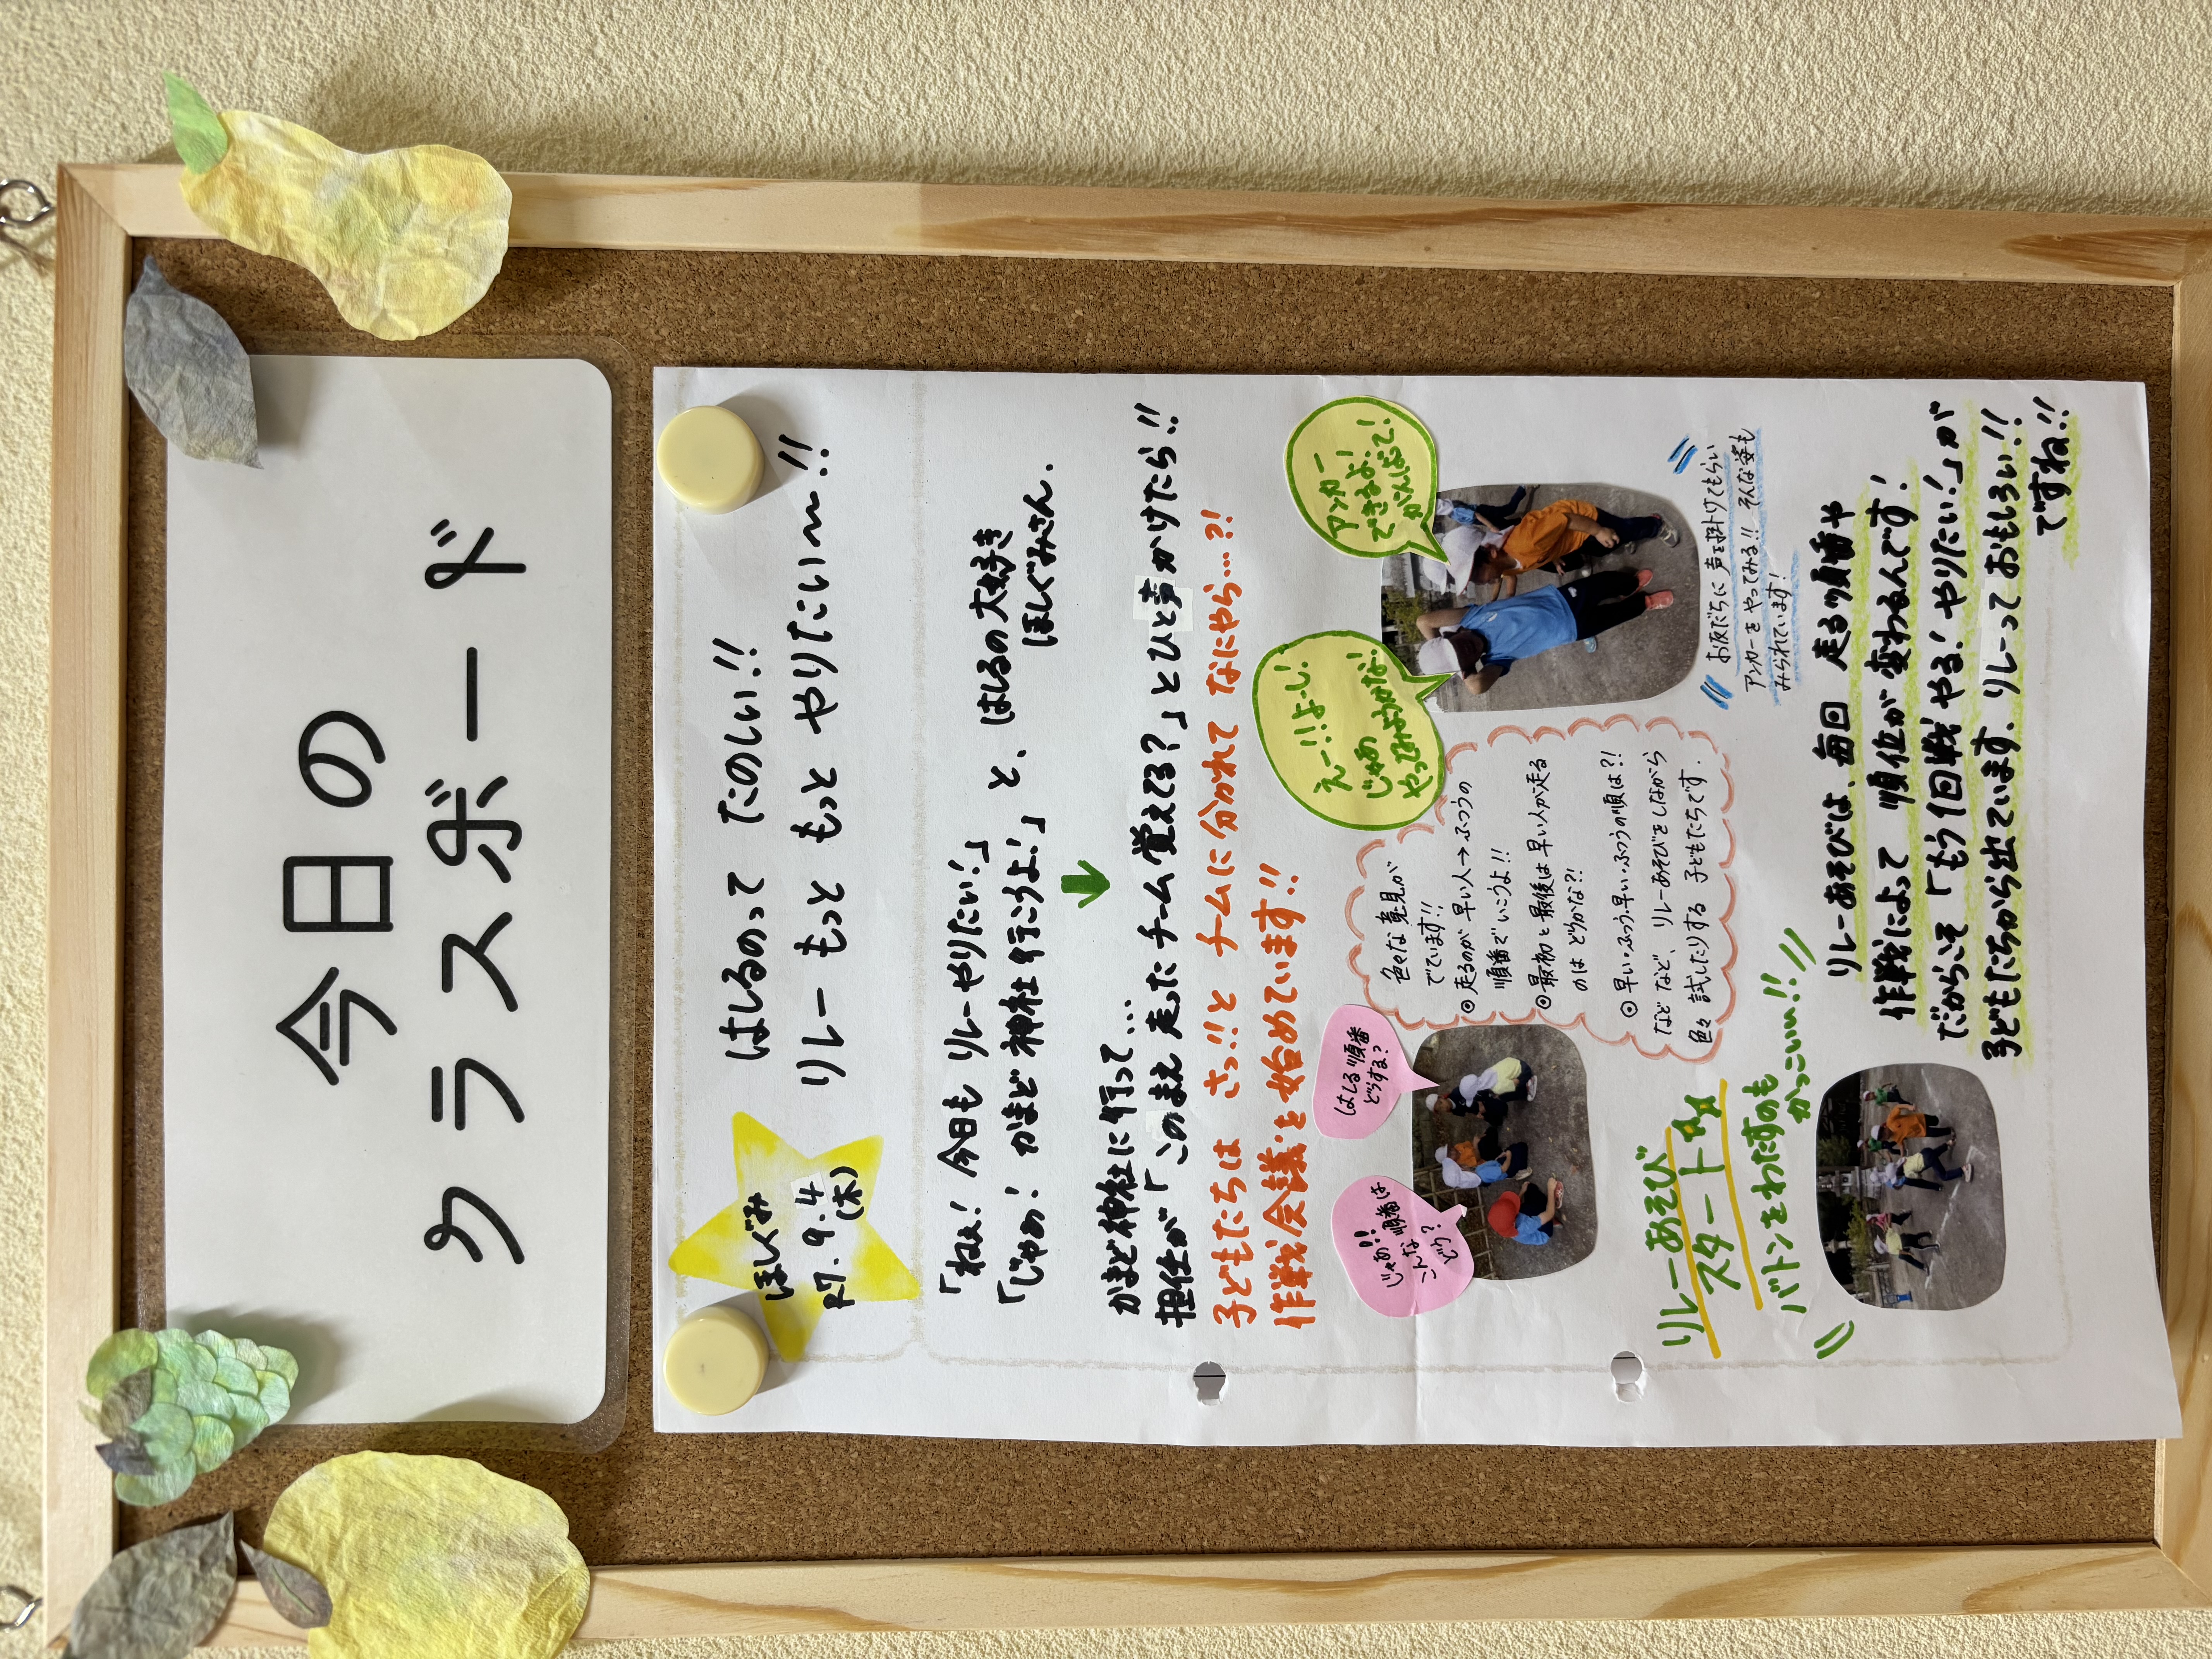 今日の
クラスボード
ほしぐみ
R7.9.4
(木)
はしるのって たのしい!!
リレー もっと もっと やりたい〜!!
「ねぇ！今日も リレーやりたい！」
「じゃあ！ かまど神社行こうよ！」と、はしるの大好き
ほしぐみさん.
かまど神社に行って...
担任が「このまえ 走ったチーム覚えてる？」とひと声かけたら!!
子どもたちは さっ!!と チームに分かれて なにやら...?!
作戦会議を始めています!!
じゃあ!!
こんな順番は
どう？
はしる順番
どうする？
色々な意見が
でています!!
◎走るのが 早い人→ふつうの
順番でいこうよ!!
◎最初と最後は早い人が走る
のは どうかな?!
◎早い・ふつう・早い・ふつうの順は?!
などなど、リレーあそびをしながら
色々試したりする 子どもたちです.
えー!!よーし!
じゃあ
やってみようかな!
アンカー
できるよ!
がんばって!
お友だちに 声を掛けてもらい
アンカーをやってみる!! そんな姿も
みられています!
リレーあそび
スタート☆☆
バトンをわたすのも
かっこいい!!
リレーあそびは、毎回 走る順番や
作戦によって 順位が変わるんです!
だからこそ「もう1回戦やる！やりたい！」が
子どもたちから出ています。リレーって おもしろい!!
ですね!!